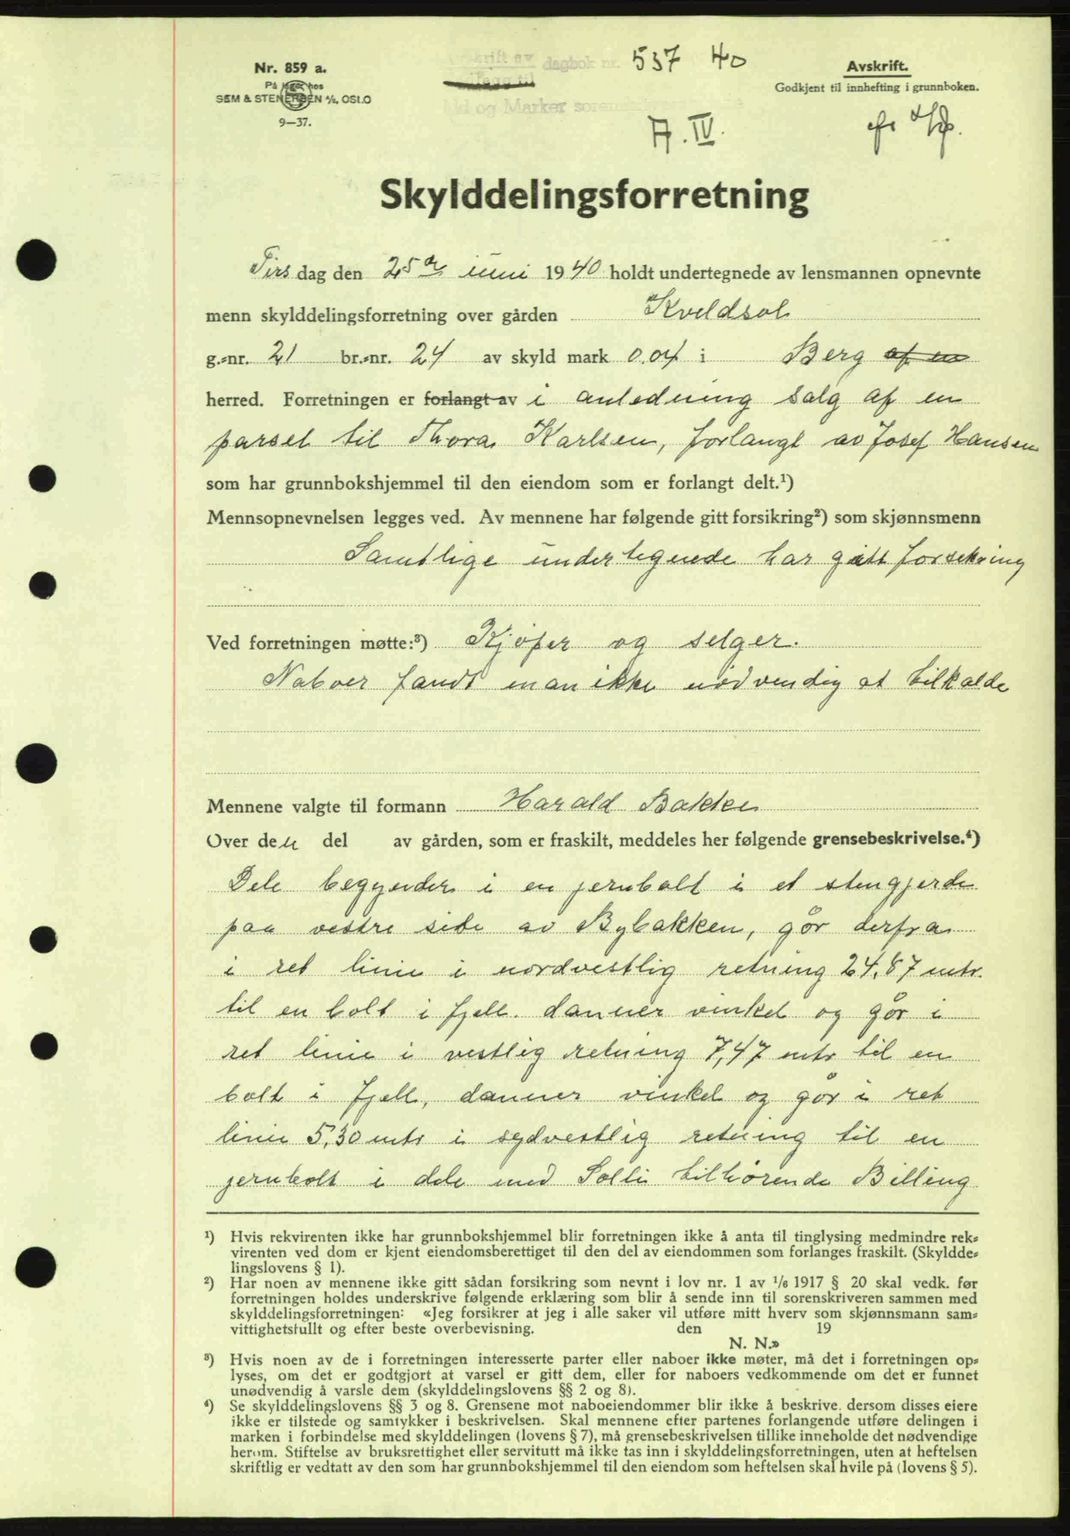 Nr. 859 a.
På lager hos
SEM & STENERSEN A/S, OSLO
9—37.
Avskrift av
dagbok nr. 537 40
Idd og Marker sorenskriveri
A. IV.
Avskrift.
Godkjent til innhefting i grunnboken.
Skylddelingsforretning
Tirs dag den 25de juni 1940 holdt undertegnede av lensmannen opnevnte
menn skylddelingsforretning over gården Kveldsol
g.-nr. 21 br.-nr. 24 av skyld mark 0.04 i Berg af en
herred. Forretningen er forlangt av i anledning salg af en
parsel til Thora Karlsen, forlangt av Josef Hansen
som har grunnbokshjemmel til den eiendom som er forlangt delt.¹)
Mennsopnevnelsen legges ved. Av mennene har følgende gitt forsikring²) som skjønnsmenn
Samtlige undertegnede har gitt forsikring
Ved forretningen møtte:³) Kjøper og selger.
Naboer fandt man ikke nödvendig at tilkalde
Mennene valgte til formann Harald Bakke
Over den del av gården, som er fraskilt, meddeles her følgende grensebeskrivelse.⁴)
Dele begynder i en jernbolt i et stengjerde
paa vestre side av Bybakken, går derfra
i ret linie i nordvestlig retning 24,87 mtr.
til en bolt i fjell. danner vinkel og går i
ret linie i vestlig retning 7,47 mtr til en
bolt i fjell, danner vinkel og går i ret
linie 5,30 mtr i sydvestlig retning til en
jernbolt i dele med Solli tilhørende Billing
¹) Hvis rekvirenten ikke har grunnbokshjemmel blir forretningen ikke å anta til tinglysing medmindre rek-
virenten ved dom er kjent eiendomsberettiget til den del av eiendommen som forlanges fraskilt. (Skyldde-
lingslovens § 1).
²) Har noen av mennene ikke gitt sådan forsikring som nevnt i lov nr. 1 av ¹/6 1917 § 20 skal vedk. før
forretningen holdes underskrive følgende erklæring som blir å sende inn til sorenskriveren sammen med
skylddelingsforretningen: «Jeg forsikrer at jeg i alle saker vil utføre mitt hverv som skjønnsmann sam-
vittighetsfullt og efter beste overbevisning. den 19
N. N.»
³) Hvis noen av de i forretningen interesserte parter eller naboer ikke møter, må det i forretningen op-
lyses, om det er godtgjort at varsel er gitt dem, eller for naboers vedkommende om det er funnet
unødvendig å varsle dem (skylddelingslovens §§ 2 og 8).
⁴) Se skylddelingslovens §§ 3 og 8. Grensene mot naboeiendommer blir ikke å beskrive, dersom disses eiere
ikke er tilstede og samtykker i beskrivelsen. Skal mennene efter partenes forlangende utføre delingen i
marken i forbindelse med skylddelingen (lovens § 7), må grensebeskrivelsen tillike inneholde det nødvendige
herom. Stiftelse av bruksrettighet eller servitutt må ikke tas inn i skylddelingsforretningen, uten at heftelsen
skriftlig er vedtatt av den som har grunnbokshjemmel til den eiendom som heftelsen skal hvile på (lovens § 5).